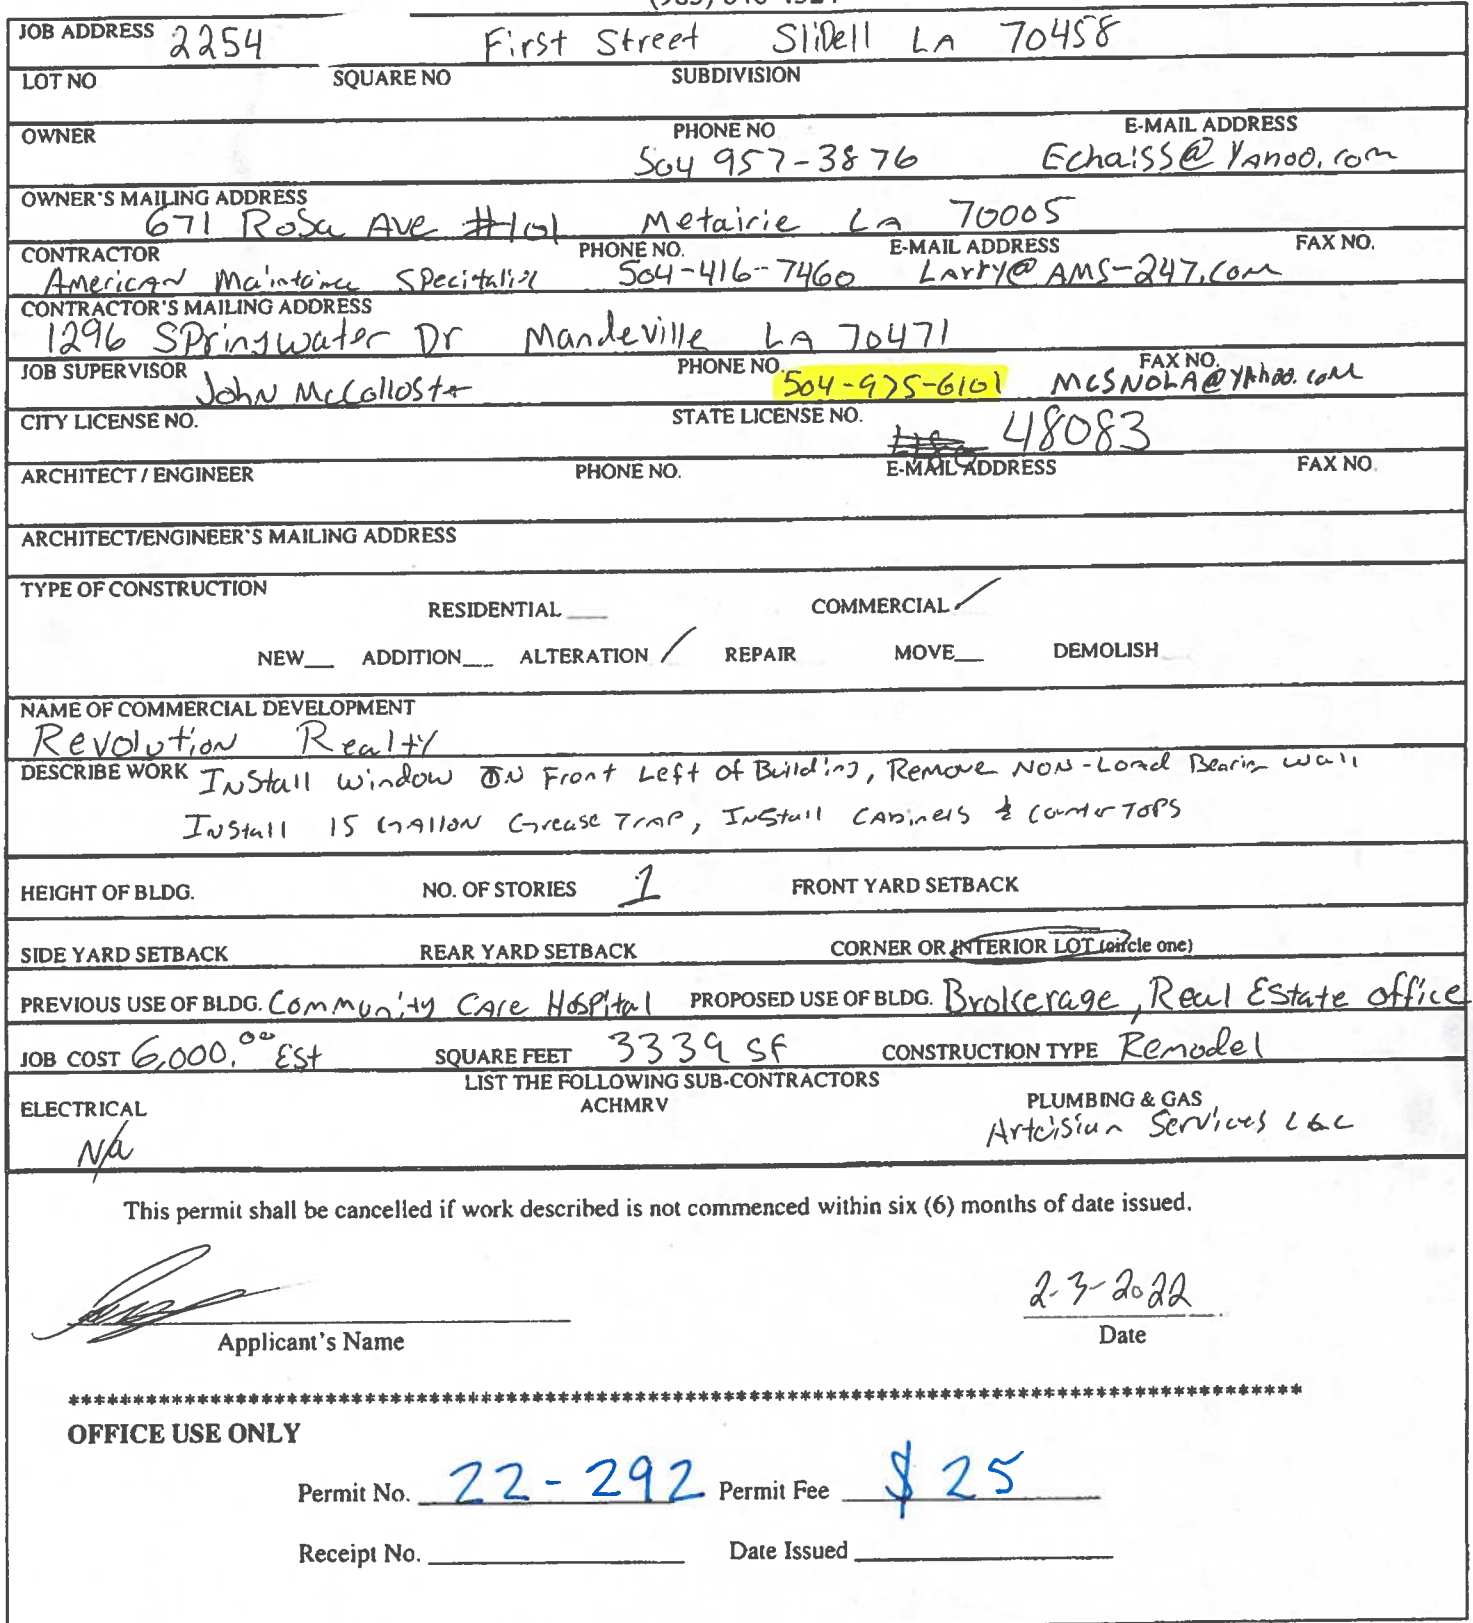 JOB ADDRESS 2254 First Street SliDell LA 70458
LOT NO SQUARE NO SUBDIVISION
OWNER PHONE NO E-MAIL ADDRESS
504 957-3876 Echaiss@Yahoo.com
OWNER'S MAILING ADDRESS
671 Rosa Ave #101 Metairie LA 70005
CONTRACTOR PHONE NO. E-MAIL ADDRESS FAX NO.
American 504-416-7460 Larry@AMS-247.com
CONTRACTOR'S MAILING ADDRESS
1296 SPringwater Dr Mandeville LA 70471
JOB SUPERVISOR PHONE NO. FAX NO.
John 504-975-6101 MCSNOLA@Yahoo.com
CITY LICENSE NO. STATE LICENSE NO. 48083
ARCHITECT / ENGINEER PHONE NO. E-MAIL ADDRESS FAX NO.
ARCHITECT/ENGINEER'S MAILING ADDRESS
TYPE OF CONSTRUCTION
RESIDENTIAL ___ COMMERCIAL /
NEW___ ADDITION___ ALTERATION / REPAIR MOVE___ DEMOLISH
NAME OF COMMERCIAL DEVELOPMENT
Revolution Realty
DESCRIBE WORK InStall window ON Front Left of Building, Remove NON-Load Bearing wall
InStall 15 GAllON Grease TrAP, InStall CABinets & CounterTOPS
HEIGHT OF BLDG. NO. OF STORIES 1 FRONT YARD SETBACK
SIDE YARD SETBACK REAR YARD SETBACK CORNER OR INTERIOR LOT (circle one)
PREVIOUS USE OF BLDG. Community CAre HosPital PROPOSED USE OF BLDG. Brokerage, Real EState office
JOB COST 6,000.00 ESt SQUARE FEET 3339 SF CONSTRUCTION TYPE Remodel
LIST THE FOLLOWING SUB-CONTRACTORS
ELECTRICAL ACHMRV PLUMBING & GAS
N/a Services LLC
This permit shall be cancelled if work described is not commenced within six (6) months of date issued.
2-3-2022
Applicant's Name Date
**********************************************************************************************
OFFICE USE ONLY
Permit No. 22-292 Permit Fee $25
Receipt No. ___ Date Issued ___